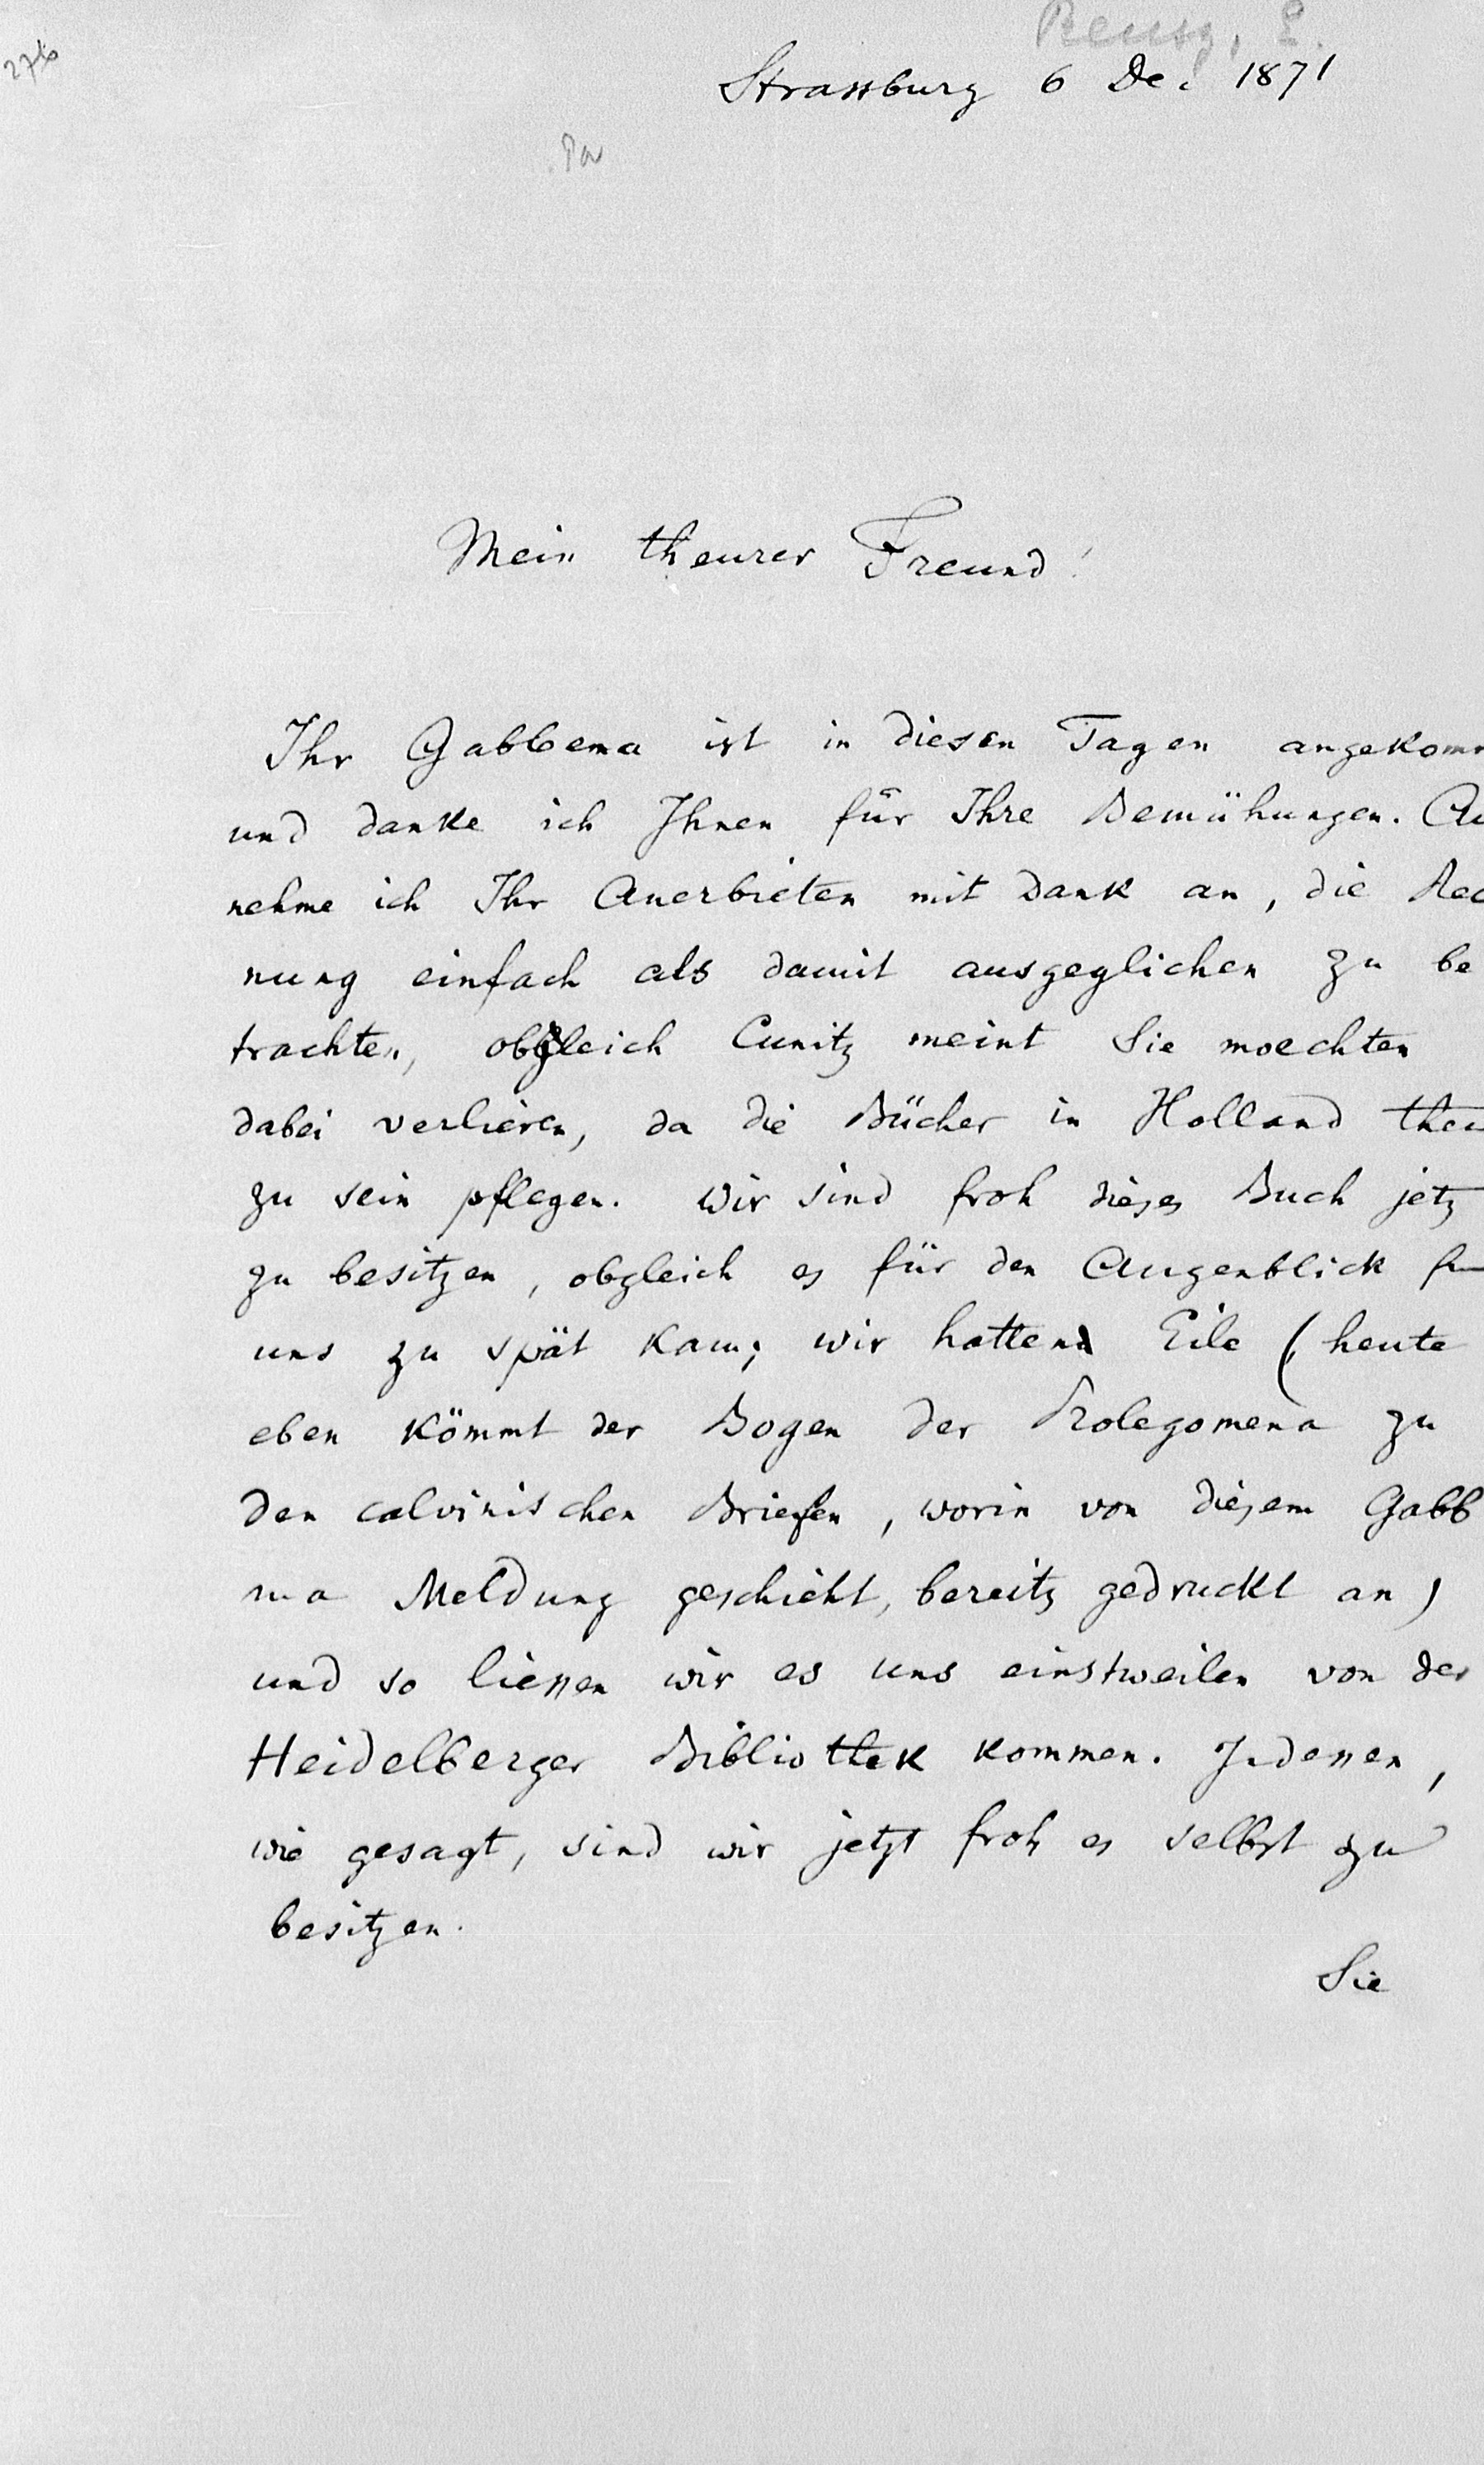 Reuss, E.
276
Strassburg 6 Dec 1871
Mein theurer Freund!
Ihr Gabbema ist in diesen Tagen angekomm
und danke ich Ihnen für Ihre Bemühungen. Au
nehme ich Ihr Anerbieten mit Dank an, die Rec
nung einfach als damit ausgeglichen zu be
trachten, obgleich Cunitz meint Sie moechten
dabei verlieren, da die Bücher in Holland theu
zu sein pflegen. Wir sind froh dieses Buch jetz
zu besitzen, obgleich es für den Augenblick
uns zu spät kam; wir hatten Eile (heute
eben kömmt der Bogen der Prolegomena zu
den calvinischen Briefen, worin von diesem Gabb
ma Meldung geschieht, bereits gedruckt an)
und so liessen wir es uns einstweilen von der
Heidelberger Bibliothek kommen. Indessen,
wie gesagt, sind wir jetzt froh es selbst zu
besitzen.
Sie